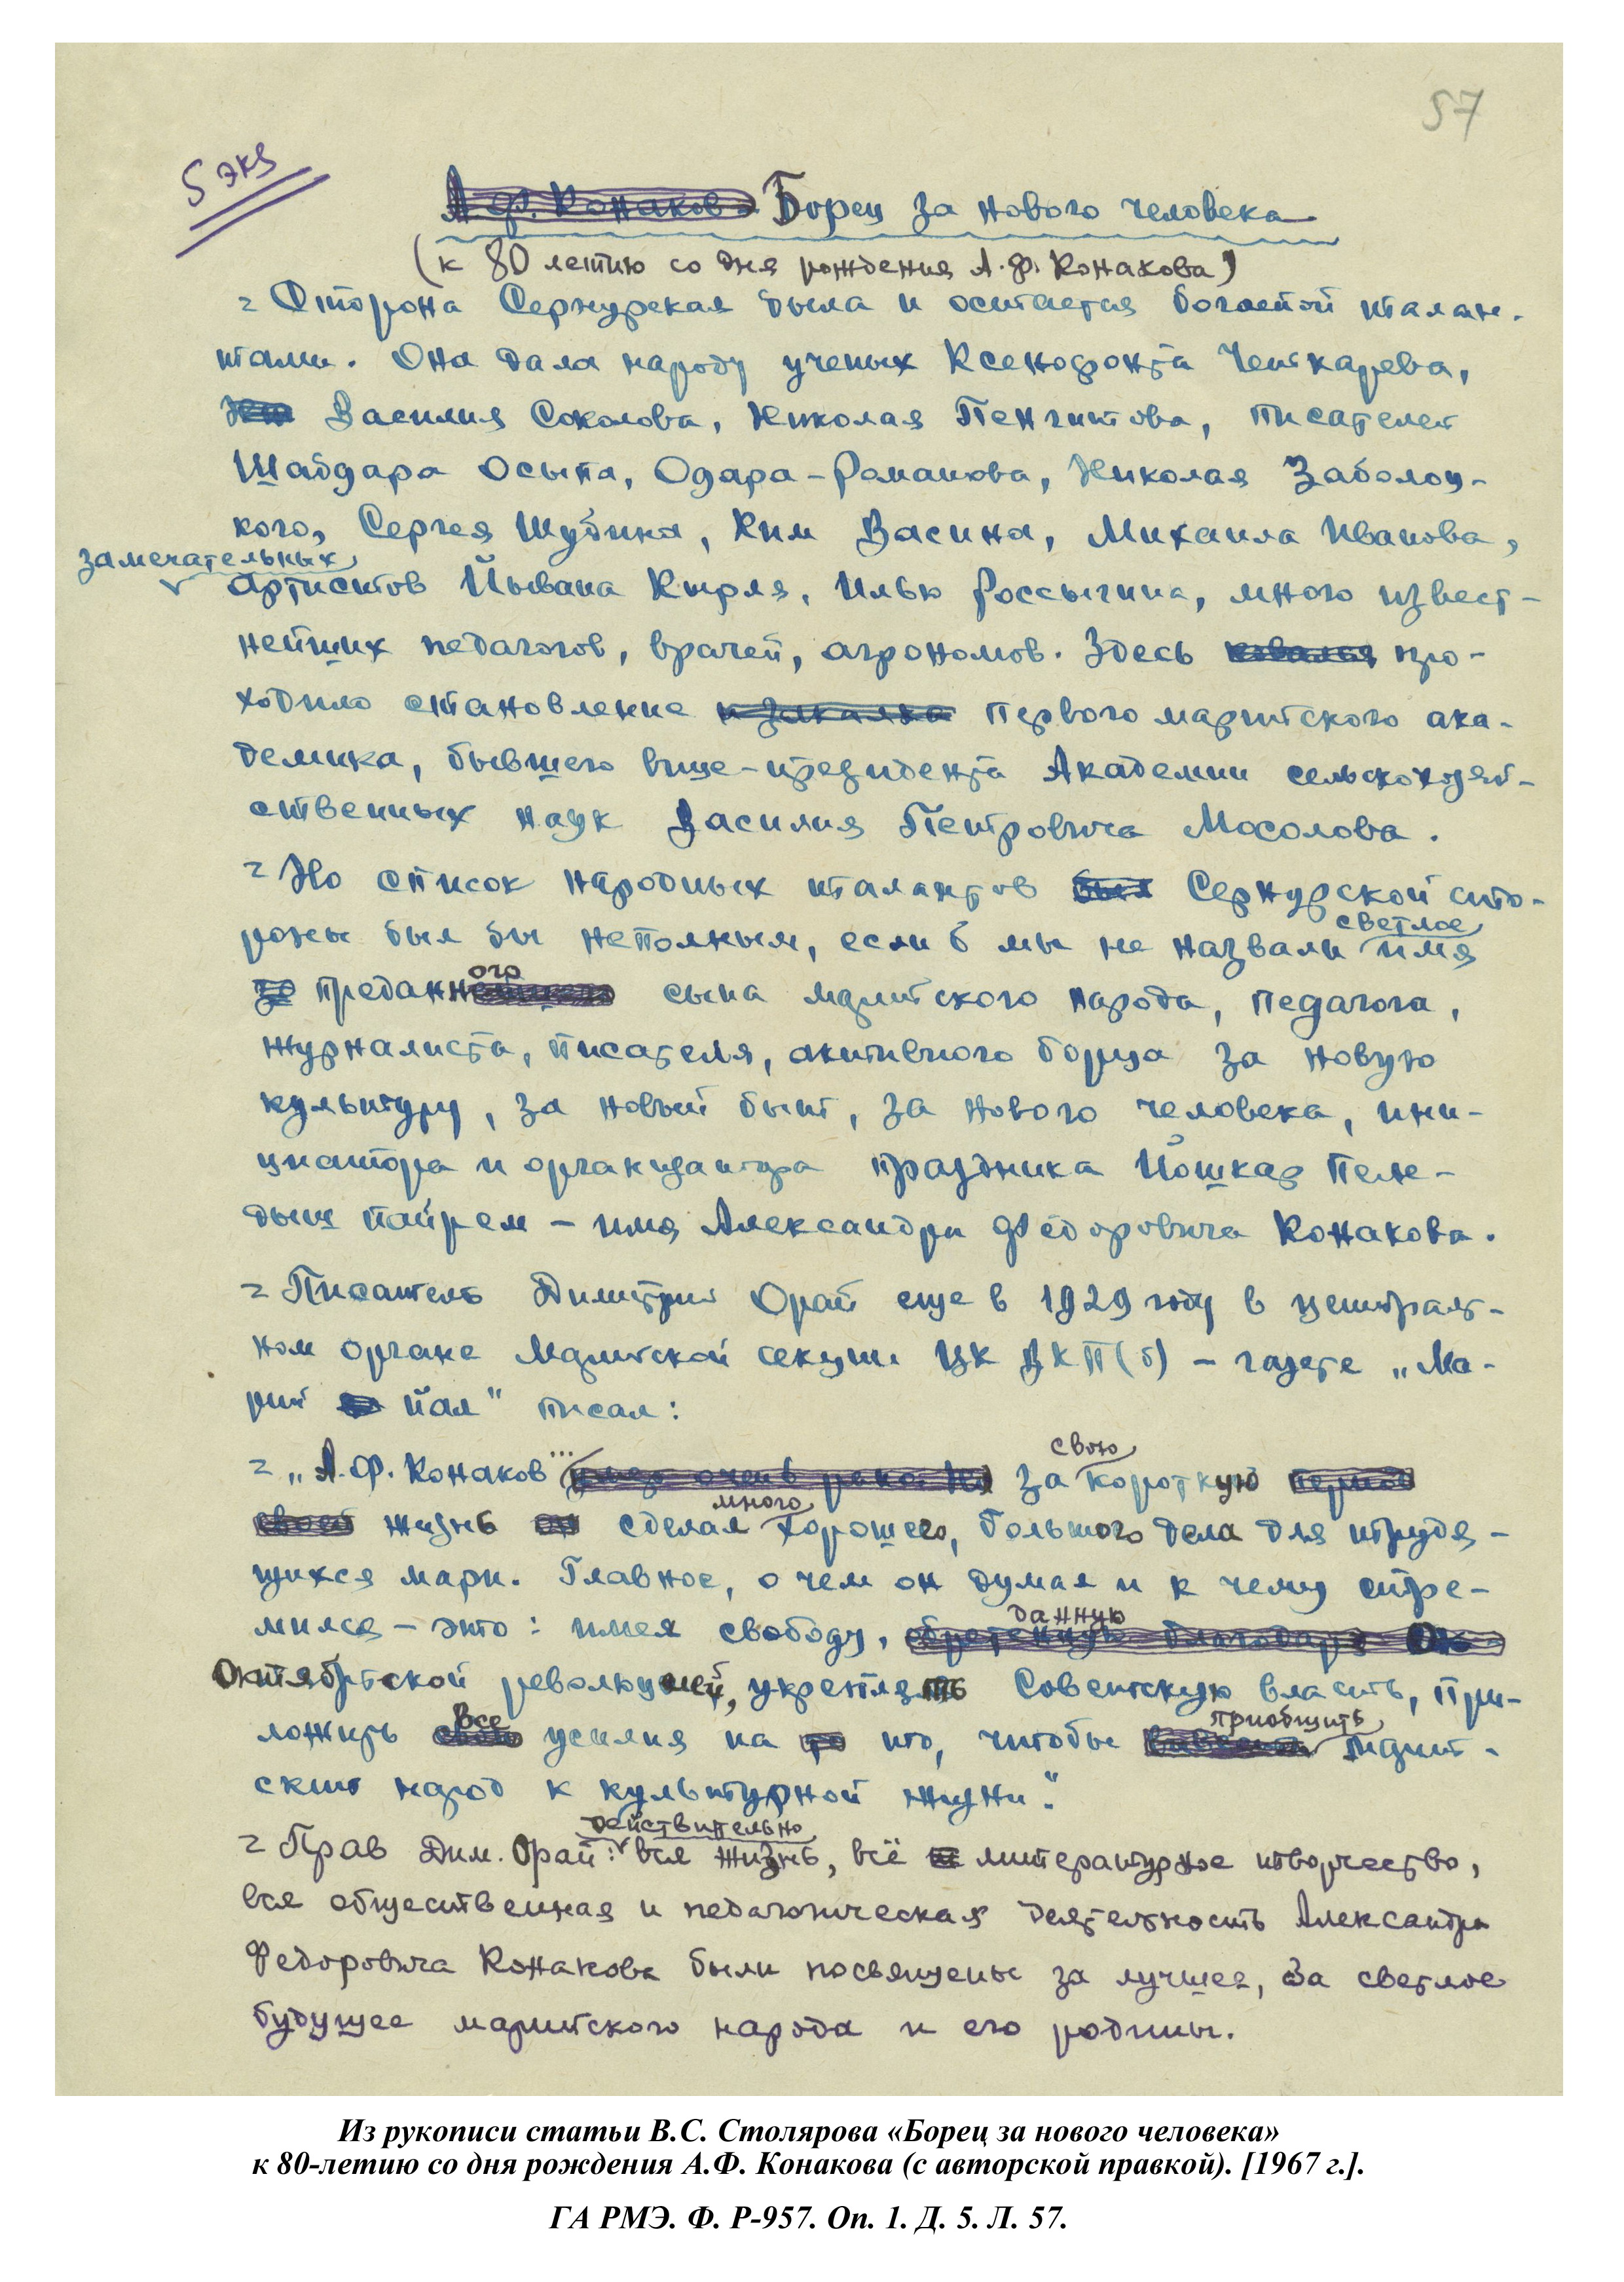 57
5 экз
А.Ф. Конаков Борец за нового человека
(к 80 летию со дня рождения А.Ф. Конакова)
= Сторона Сернурская была и остается богатой талан-
тами. Она дала народу ученых Ксенофонта Четкарева,
Василия Соколова, Николая Пенгитова, писателей
Шабдара Осыпа, Одара-Романова, Николая Заболоц-
кого, Сергея Шубина, Ким Васина, Михаила Иванова,
замечательных
артистов Йывана Кырля, Илью Россыгина, много извест-
нейших педагогов, врачей, агрономов. Здесь ковался про-
ходило становление и закалка первого марийского ака-
демика, бывшего вице-президента Академии сельскохозяй-
ственных наук Василия Петровича Мосолова.
= Но список народных талантов был Сернурской сто-
светлое
роны был бы неполным, если б мы не назвали имя
ого
преданнейшего сына марийского народа, педагога,
журналиста, писателя, активного борца за новую
культуру, за новый быт, за нового человека, ини-
циатора и организатора праздника Йошкар Пеле-
дыш пайрем – имя Александра Фёдоровича Конакова.
= Писатель Димитрий Орай еще в 1929 году в централь-
ном органе Марийской секции ЦК ВКП(б) – газете „Ма-
рий йал" писал:
свою
= „А.Ф. Конаков ... за короткую период
много
своей жизнь он сделал хорошего, большого дела для трудя-
щихся мари. Главное, о чем он думал и к чему стре-
данную
мился – это: имея свободу, обретенную благодаря Ок-
Октябрьской революцией, укреплять Советскую власть, при-
все приобщить
ложить свои усилия на то то, чтобы марий-
ский народ к культурной жизни".
действительно
= Прав Дим. Орай: вся жизнь, всё литературное творчество,
вся общественная и педагогическая деятельность Александра
Федоровича Конакова были посвящены за лучшее, за светлое
будущее марийского народа и его родины.
Из рукописи статьи В.С. Столярова «Борец за нового человека»
к 80-летию со дня рождения А.Ф. Конакова (с авторской правкой). [1967 г.].
ГА РМЭ. Ф. Р-957. Оп. 1. Д. 5. Л. 57.